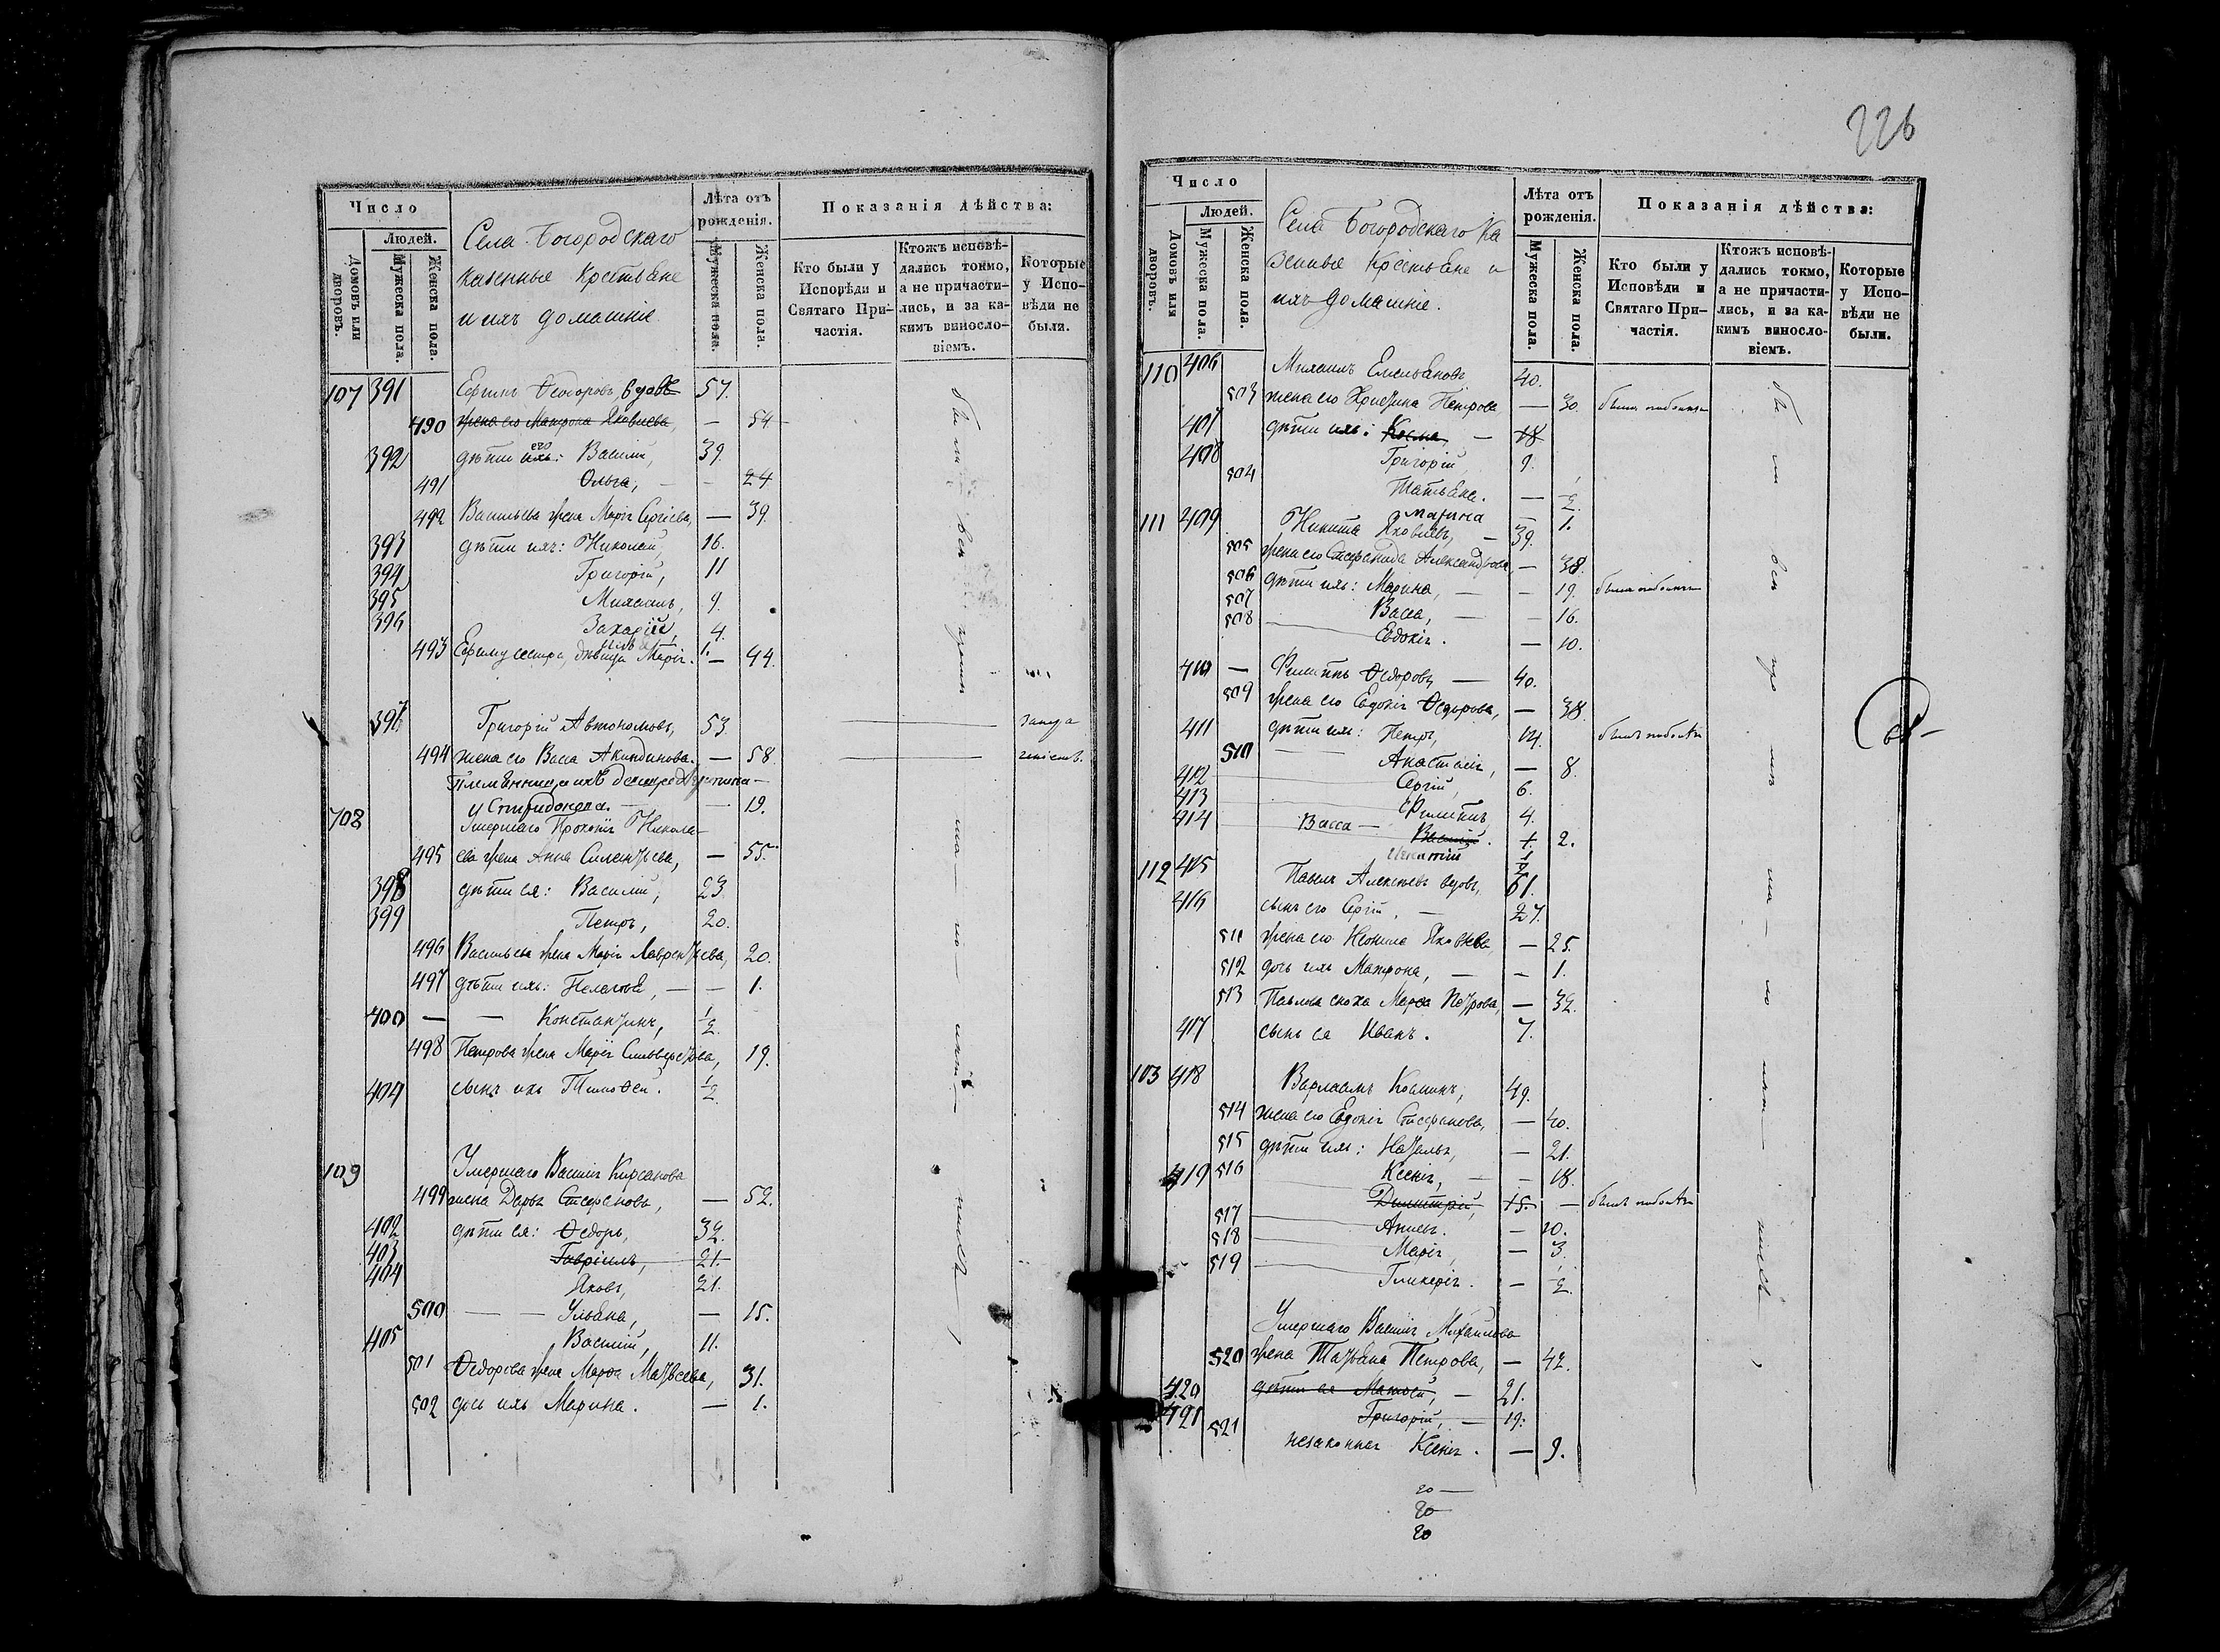 Число
Людей.
Домовъ или дворовъ.
Мужеска пола.
Женска пола.
Села Богородскаго
казенные Крестьяне
и ихъ домашніе.
Лѣта отъ рожденія.
Мужеска пола.
Женска пола.
Показанія дѣйства:
Кто были у Исповѣди и Святаго Причастія.
Ктожъ исповѣдались токмо, а не причастились, и за какимъ винословіемъ.
Которые у Исповѣди не были.
107 391 Ефимъ Ѳеодоровъ, вдовъ 57.
490 жена его Матрона Яковлева, — 54
392 дѣти ихъ: его Василій, 39.
491 Ольга, — — 24
492 Васильева жена Марія Сергіева, — 39.
393 дѣти ихъ: Николай, 16.
394 Григорій, 11
395 Михаилъ, 9.
396 Захарій, 4.
1.
493 Ефиму сестра, дѣвица Марія. — 44.
397 Григорій Автономовъ, 53.
494 жена его Васса Акиндинова. — 58.
— 19.
108 Умершаго Прокопія Никола-
495 ева жена Анна Силентьева, — 55.
398 дѣти ея: Василій, 23.
399 Петръ, 20.
496 Васильева жена Марія Лаврентьева, 20.
497 дѣти ихъ: Пелагія, — — 1.
400 — — Константинъ, 1/2.
498 Петрова жена Марія Сильверстова, 19.
404 сынъ ихъ Тимоѳей. 1/2
109 Умершаго Василія Кирсанова
499 жена Дарья Стефанова, — 52.
402 дѣти ея: Ѳедоръ, 32.
403 Гавріилъ, 21.
404 Яковъ, 21.
500 — — Ульяна, — 15.
405 Василій, 11.
501 Ѳедорова жена Марѳа Матвеева, 31.
502 дочь ихъ Марина. — 1.
226
Число
Людей.
Домовъ или дворовъ.
Мужеска пола.
Женска пола.
Села Богородскаго Ка
зенные Крестьяне и
ихъ домашніе.
Лѣта отъ рожденія.
Мужеска пола.
Женска пола.
Показанія дѣйства:
Кто были у Исповѣди и Святаго Причастія.
Ктожъ исповѣдались токмо, а не причастились, и за какимъ винословіемъ.
Которые у Исповѣди не были.
110 406 Михаилъ Емельяновъ 40.
503 жена его Христина Петрова — 30.
407 дѣти ихъ: Косма, — 18
408 Григорій, 9.
504 Татьяна. — 1/2.
Марина — 1.
111 409 Никита Яковлевъ, — 39.
505 жена его Стефанида Александрова, — 38.
506 дѣти ихъ: Марина, — — 19.
507 Васса, — — 16.
508 Евдокія. — 10.
410 — Филиппъ Ѳедоровъ — 40.
509 жена его Евдокія Ѳедорова, — 38.
411 дѣти ихъ: Петръ, 14.
510 Анастасія, — 8.
412 Сергій, 6.
413 Филиппъ 4.
414 Васса — Василій. 1. 2.
112 415 Павелъ Алексѣевъ вдовъ, 61.
416 сынъ его Сергій, — 27.
511 жена его Неонила Яковлева, — 25.
512 дочь ихъ Матрона, — — 1.
513 Павлова сноха Марѳа Петрова, — 32.
417 сынъ ея Иванъ. 7.
103 418 Варлаамъ Косминъ, 49.
514 жена его Евдокія Стефанова, — 40.
515 дѣти ихъ: Наталья, — 21.
419 516 Ксенія, — — 18.
Димитрій, 15. —
517 Анисья. — 10.
518 Марія, — 3.
519 Гликерія. — 1/2.
Умершаго Василія Михайлова
520 жена Татьяна Петрова, — 42.
420 дѣти ея Матѳей, — 21.
421 Григорій, — 19.
521 незаконная Ксенія. — 9.
20 —
20
20